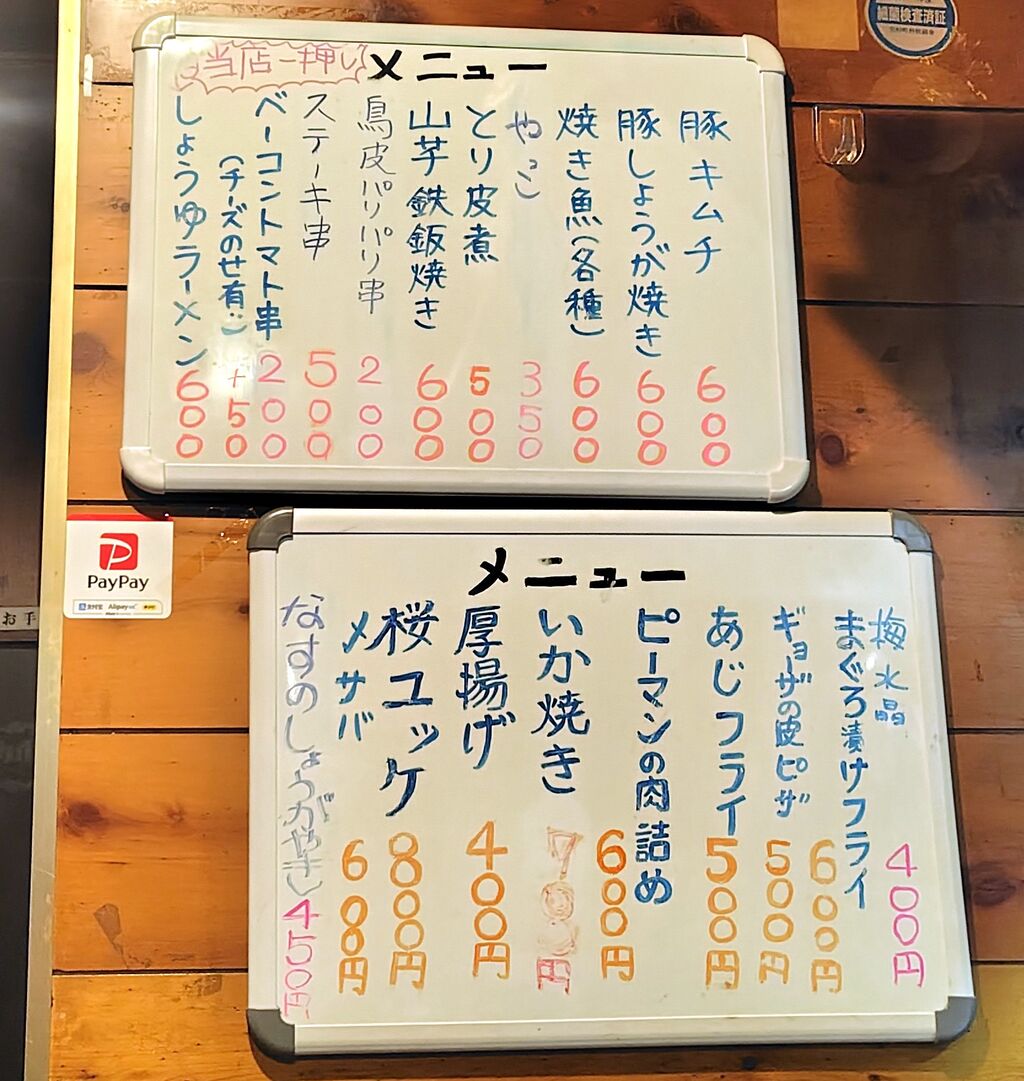 細菌検査済証
メニュー
豚キムチ 600
豚しょうが焼き 600
焼き魚(各種) 600
やっこ 350
とり皮煮 500
山芋鉄鈑焼き 600
鳥皮パリパリ串 200
ステーキ串 500
当店一押し
ベーコントマト串 200
(チーズのせ有り) +50
しょうゆラーメン 600
PayPay
お手
メニュー
梅水晶 400円
まぐろ漬けフライ 600円
ギョーザの皮ピザ 500円
あじフライ 500円
ピーマンの肉詰め 600円
いか焼き 700円
厚揚げ 400円
桜ユッケ 800円
メサバ 600円
なすのしょうがやき 450円